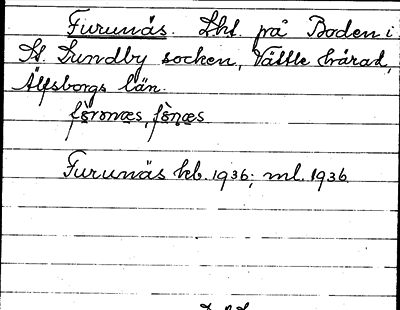 Furunäs. Lht. på Boden i
St. Lundby socken, Vättle härad,
Älfsborgs län.
Furunäs kb. 1936; ml. 1936.